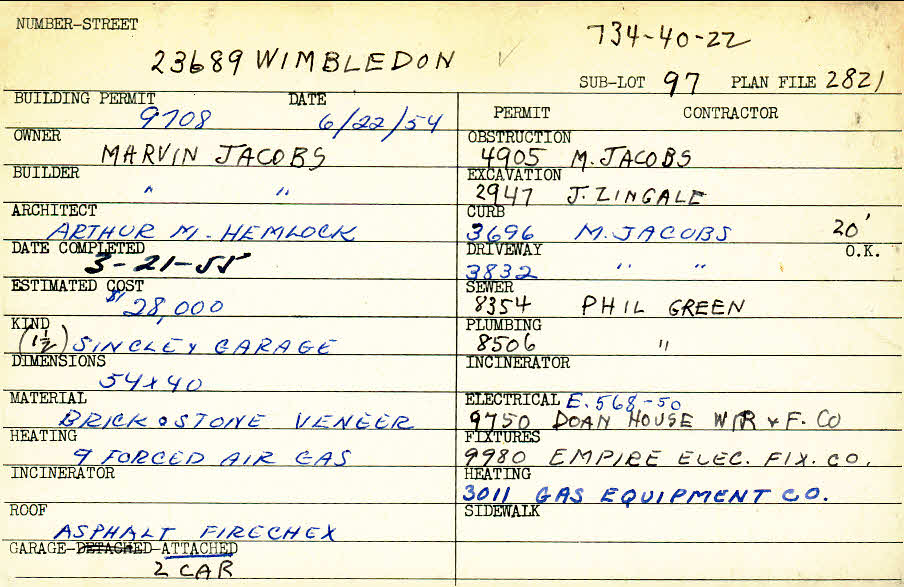 NUMBER-STREET
734-40-22
23689 WIMBLEDON ✓
SUB-LOT 97 PLAN FILE 2821
BUILDING PERMIT DATE
9708 6/22/54
OWNER
MARVIN JACOBS
BUILDER
" "
ARCHITECT
ARTHUR M. HEMLOCK
DATE COMPLETED
3-21-55
ESTIMATED COST
$28,000
KIND
(1½) SINGLE & GARAGE
DIMENSIONS
54x40
MATERIAL
BRICK & STONE VENEER
HEATING
9 FORCED AIR GAS
INCINERATOR
ROOF
ASPHALT FIRECHEX
GARAGE-DETACHED-ATTACHED
2 CAR
PERMIT CONTRACTOR
OBSTRUCTION
4905 M. JACOBS
EXCAVATION
2947 J. ZINGALE
CURB
3696 M. JACOBS 20'
DRIVEWAY O.K.
3832 " "
SEWER
8354 PHIL GREEN
PLUMBING
8506 "
INCINERATOR
ELECTRICAL E.568-50
9750 DOAN HOUSE WIR & F. CO
FIXTURES
9980 EMPIRE ELEC. FIX. CO.
HEATING
3011 GAS EQUIPMENT CO.
SIDEWALK